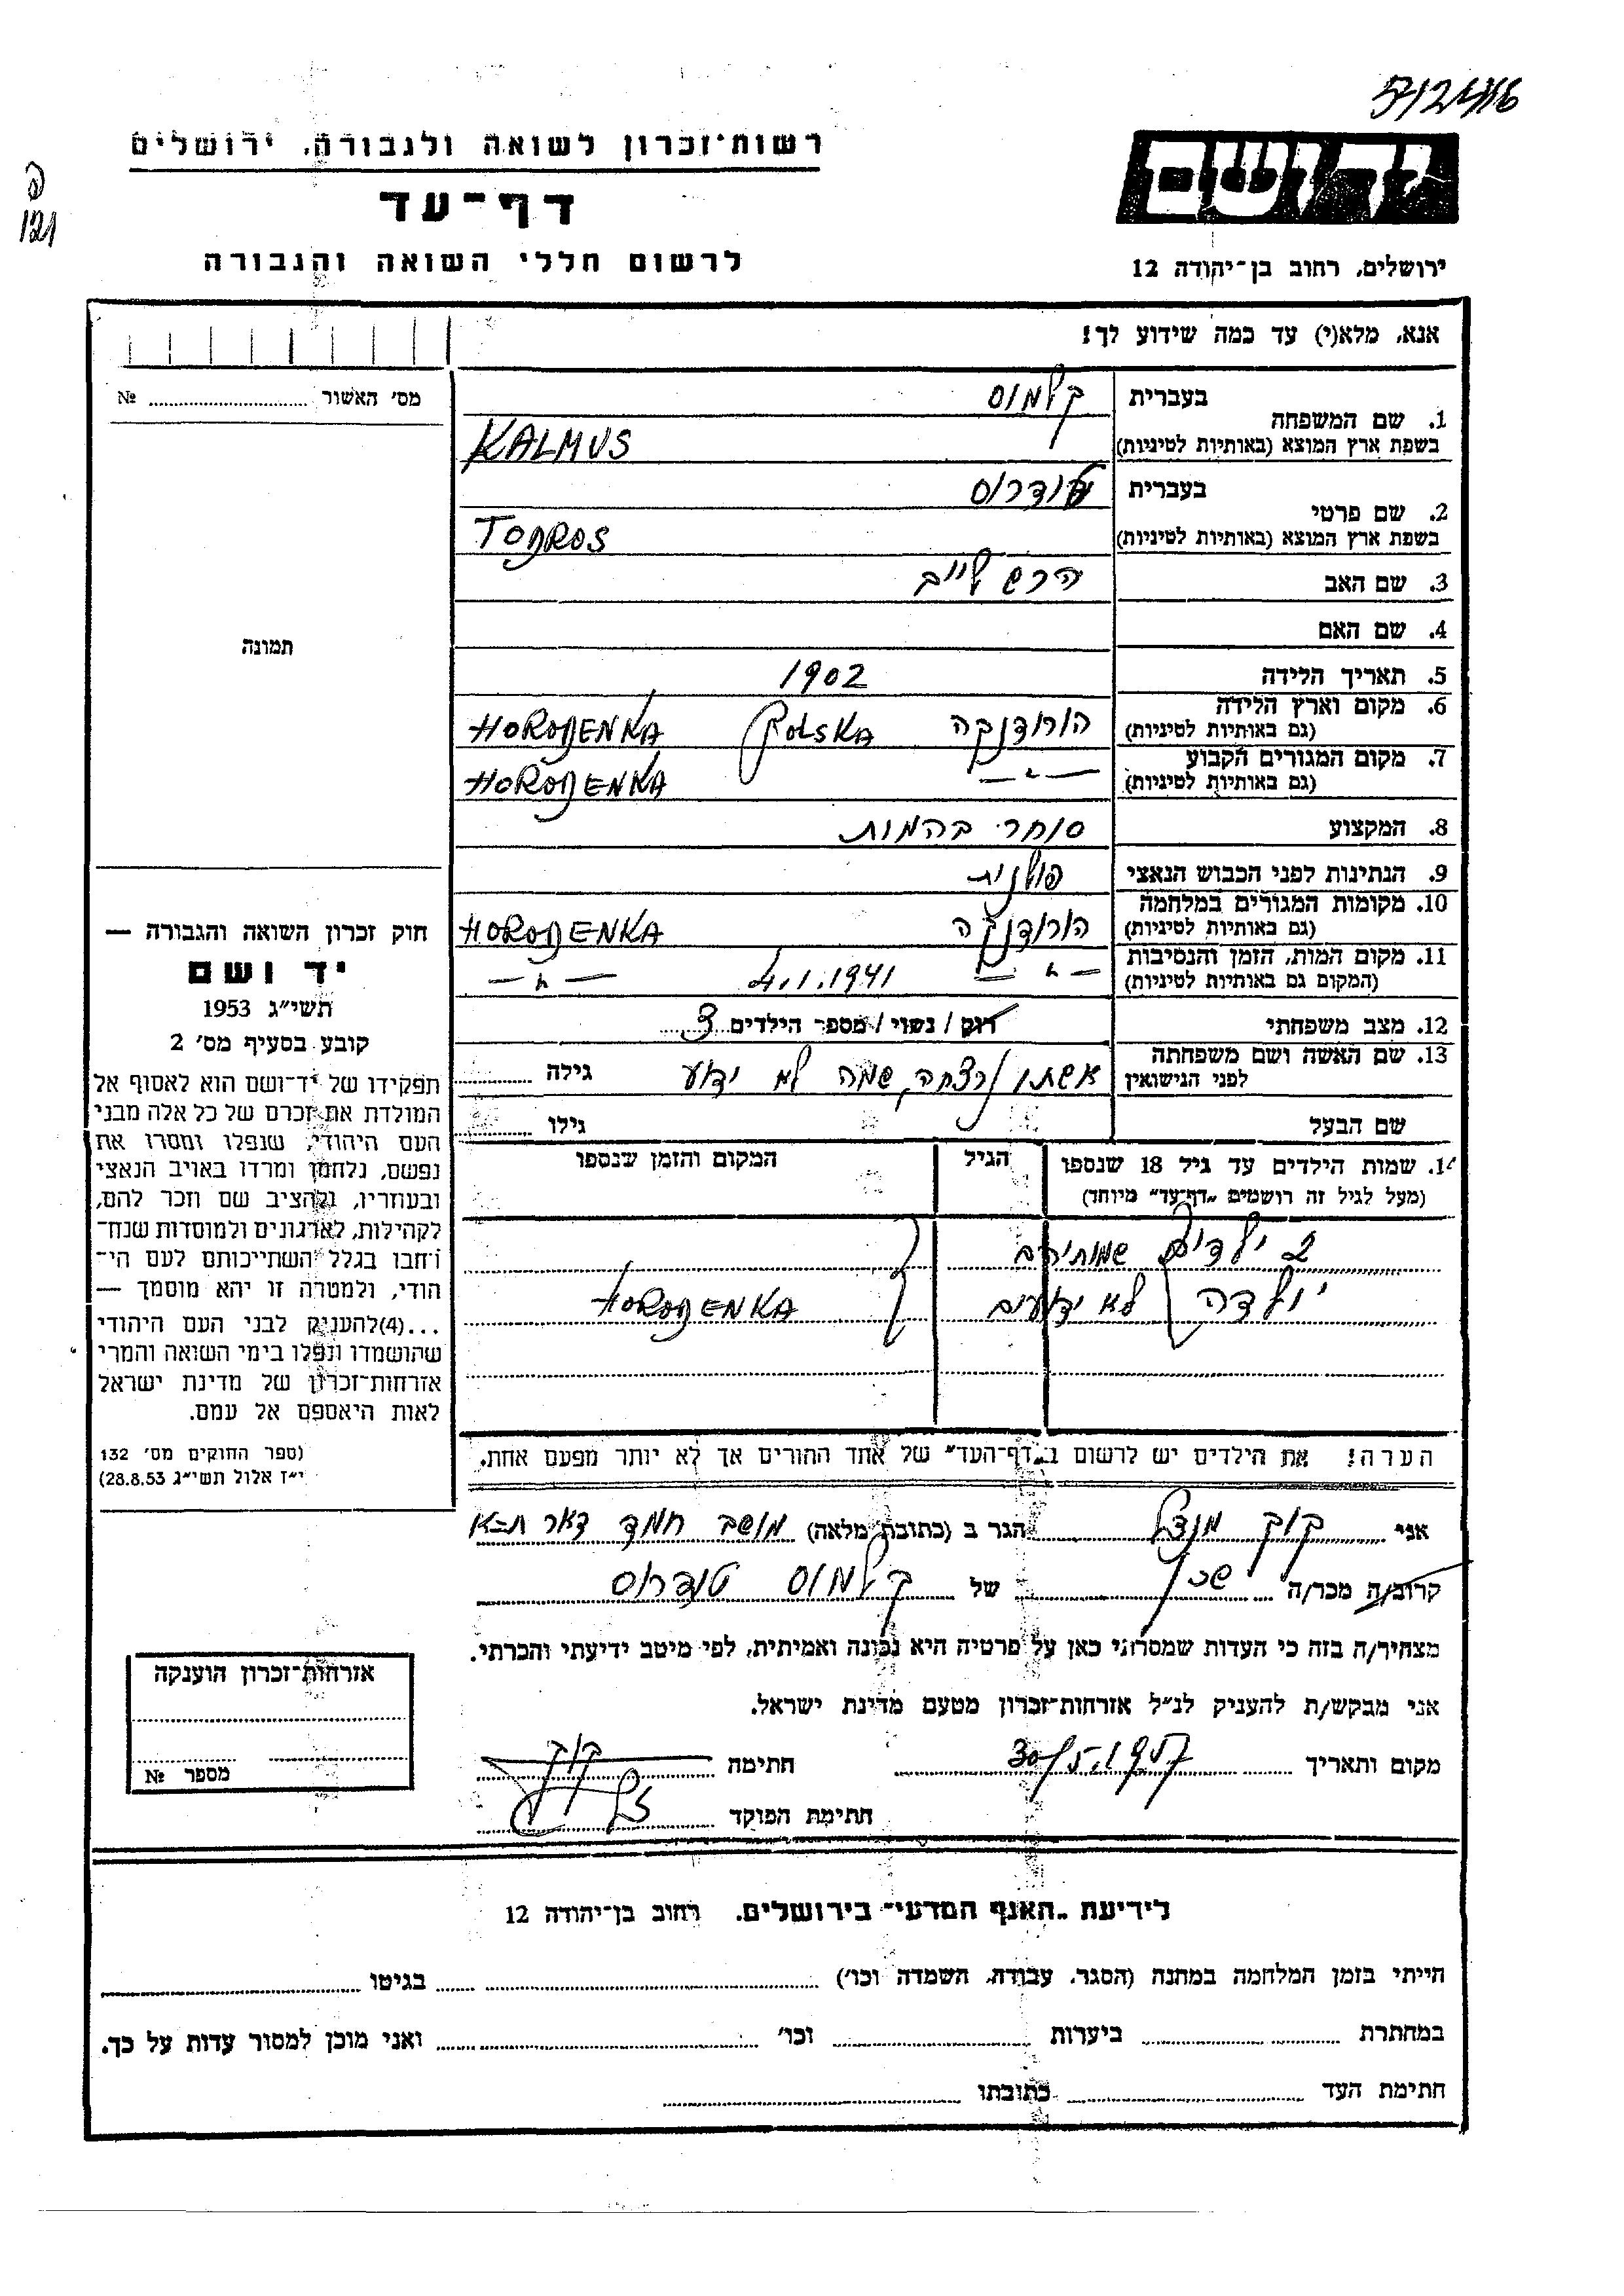 רשות־זכרון לשואה ולגבורה, ירושלים
דף־עד
לרשום חללי השואה והגבורה
ידושם
ירושלים, רחוב בן־יהודה 12
121
אנא, מלא(י) עד כמה שידוע לך!
מס׳ האשור № 
בעברית קלמוס
1. שם המשפחה
בשפת ארץ המוצא (באותיות לטיניות) KALMUS
בעברית טודרוס
2. שם פרטי
בשפת ארץ המוצא (באותיות לטיניות) TODROS
3. שם האב הרש לייב
4. שם האם
5. תאריך הלידה 1902
6. מקום וארץ הלידה הורודנקה POLSKA HORODENKA
(גם באותיות לטיניות)
7. מקום המגורים הקבוע — " — HORODENKA
(גם באותיות לטיניות)
8. המקצוע סוחר בהמות
9. הנתינות לפני הכבוש הנאצי פולנית
10. מקומות המגורים במלחמה הורודנקה HORODENKA
(גם באותיות לטיניות)
11. מקום המות, הזמן והנסיבות — " — 4.1.1941 — " —
(המקום גם באותיות לטיניות)
12. מצב משפחתי רווק / נשוי / מספר הילדים 3
13. שם האשה ושם משפחתה אשתו נרצחה, שמה לא ידוע גילה
לפני הנישואין
שם הבעל גילו
תמונה
חוק זכרון השואה והגבורה —
יד ושם
תשי״ג 1953
קובע בסעיף מס׳ 2
תפקידו של יד־ושם הוא לאסוף אל
המולדת את זכרם של כל אלה מבני
העם היהודי, שנפלו ומסרו את
נפשם, נלחמו ומרדו באויב הנאצי
ובעוזריו, ולהציב שם וזכר להם,
לקהילות, לארגונים ולמוסדות שנח־
רבו בגלל השתייכותם לעם הי־
הודי, ולמטרה זו יהא מוסמך —
...(4)להעניק לבני העם היהודי
שהושמדו ונפלו בימי השואה והמרי
אזרחות־זכרון של מדינת ישראל
לאות היאספם אל עמם.
(ספר החוקים מס׳ 132
י״ז אלול תשי״ג 28.8.53)
14. שמות הילדים עד גיל 18 שנספו הגיל המקום והזמן שנספו
(מעל לגיל זה רושמים „דף־עד״ מיוחד)
2 ילדים שמותיהם
וילדה לא ידועים HORODENKA
הערה! את הילדים יש לרשום ב„דף־העד״ של אחד ההורים אך לא יותר מפעם אחת.
אני קוק מנדל הגר ב (כתובת מלאה) מושב חמד דאר ת״א
קרוב/ה מכר/ה שכן של קלמוס טודרוס
מצהיר/ה בזה כי העדות שמסרתי כאן על פרטיה היא נכונה ואמיתית, לפי מיטב ידיעתי והכרתי.
אני מבקש/ת להעניק לנ״ל אזרחות־זכרון מטעם מדינת ישראל.
מקום ותאריך 30/5.1957 חתימה קוק
חתימת הפוקד
אזרחות־זכרון הוענקה
מספר №
לידיעת „האגף המדעי״ בירושלים. רחוב בן־יהודה 12
הייתי בזמן המלחמה במחנה (הסגר, עבודה, השמדה וכו׳) בגיטו
במחתרת ביערות וכו׳ ואני מוכן למסור עדות על כך.
חתימת העד כתובתו